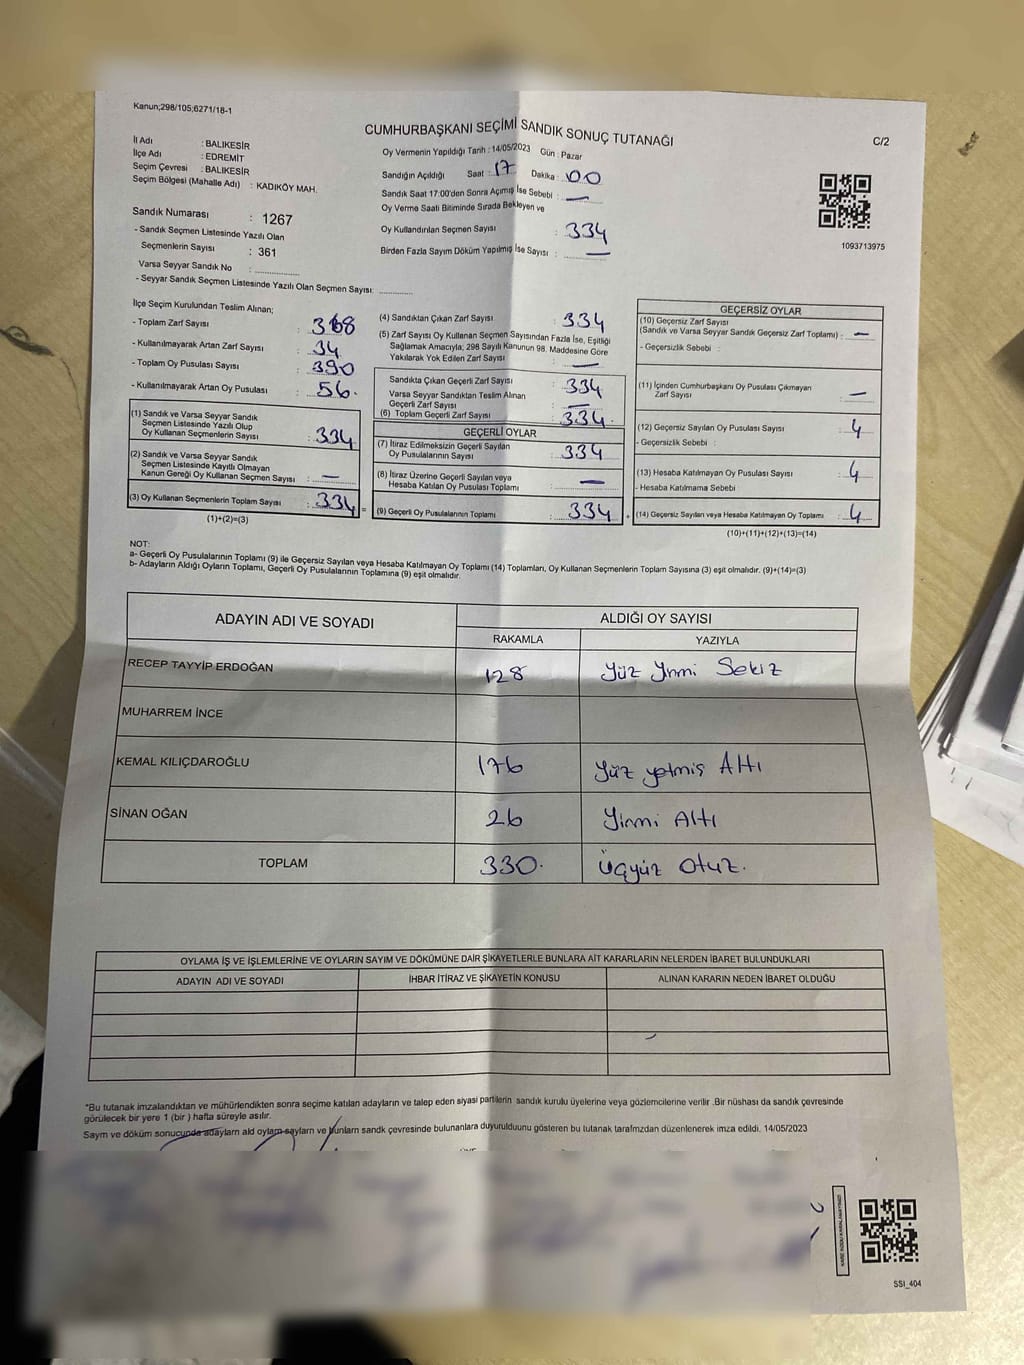 Kanun;298/105;6271/18-1
CUMHURBAŞKANI SEÇİMİ SANDIK SONUÇ TUTANAĞI
C/2
İl Adı : BALIKESİR
İlçe Adı : EDREMİT
Seçim Çevresi : BALIKESİR
Seçim Bölgesi (Mahalle Adı) : KADIKÖY MAH.
Oy Vermenin Yapıldığı Tarih : 14/05/2023 Gün : Pazar
Sandığın Açıldığı Saat : 17 Dakika : 00
Sandık Saat 17:00'den Sonra Açımış İse Sebebi : —
Oy Verme Saati Bitiminde Sırada Bekleyen ve
Oy Kullandırılan Seçmen Sayısı : 334
Birden Fazla Sayım Döküm Yapılmış İse Sayısı : —
1093713975
Sandık Numarası : 1267
- Sandık Seçmen Listesinde Yazılı Olan
Seçmenlerin Sayısı : 361
Varsa Seyyar Sandık No : ..............
- Seyyar Sandık Seçmen Listesinde Yazılı Olan Seçmen Sayısı: ..............
İlçe Seçim Kurulundan Teslim Alınan;
- Toplam Zarf Sayısı : 368
- Kullanılmayarak Artan Zarf Sayısı : 34
- Toplam Oy Pusulası Sayısı : 390
- Kullanılmayarak Artan Oy Pusulası : 56.
(1) Sandık ve Varsa Seyyar Sandık
Seçmen Listesinde Yazılı Olup
Oy Kullanan Seçmenlerin Sayısı : 334
(2) Sandık ve Varsa Seyyar Sandık
Seçmen Listesinde Kayıtlı Olmayan
Kanun Gereği Oy Kullanan Seçmen Sayısı : —
(3) Oy Kullanan Seçmenlerin Toplam Sayısı : 334 =
(1)+(2)=(3)
(4) Sandıktan Çıkan Zarf Sayısı : 334
(5) Zarf Sayısı Oy Kullanan Seçmen Sayısından Fazla İse, Eşitliği
Sağlamak Amacıyla; 298 Sayılı Kanunun 98. Maddesine Göre
Yakılarak Yok Edilen Zarf Sayısı : —
Sandıkta Çıkan Geçerli Zarf Sayısı : 334
Varsa Seyyar Sandıktan Teslim Alınan
Geçerli Zarf Sayısı : —
(6) Toplam Geçerli Zarf Sayısı : 334.
GEÇERLİ OYLAR
(7) İtiraz Edilmeksizin Geçerli Sayılan
Oy Pusulalarının Sayısı : 334
(8) İtiraz Üzerine Geçerli Sayılan veya
Hesaba Katılan Oy Pusulası Toplamı : —
(9) Geçerli Oy Pusulalarının Toplamı : 334
GEÇERSİZ OYLAR
(10) Geçersiz Zarf Sayısı
(Sandık ve Varsa Seyyar Sandık Geçersiz Zarf Toplamı) : —
- Geçersizlik Sebebi :
(11) İçinden Cumhurbaşkanı Oy Pusulası Çıkmayan
Zarf Sayısı : —
(12) Geçersiz Sayılan Oy Pusulası Sayısı : 4
- Geçersizlik Sebebi :
(13) Hesaba Katılmayan Oy Pusulası Sayısı : 4
- Hesaba Katılmama Sebebi
(14) Geçersiz Sayılan veya Hesaba Katılmayan Oy Toplamı : 4
(10)+(11)+(12)+(13)=(14)
NOT:
a- Geçerli Oy Pusulalarının Toplamı (9) ile Geçersiz Sayılan veya Hesaba Katılmayan Oy Toplamı (14) Toplamları, Oy Kullanan Seçmenlerin Toplam Sayısına (3) eşit olmalıdır. (9)+(14)=(3)
b- Adayların Aldığı Oyların Toplamı, Geçerli Oy Pusulalarının Toplamına (9) eşit olmalıdır.
ADAYIN ADI VE SOYADI ALDIĞI OY SAYISI
RAKAMLA YAZIYLA
RECEP TAYYİP ERDOĞAN 128 Yüz Yirmi Sekiz
MUHARREM İNCE
KEMAL KILIÇDAROĞLU 176 Yüz yetmiş Altı
SİNAN OĞAN 26 Yirmi Altı
TOPLAM 330. Üçyüz Otuz.
OYLAMA İŞ VE İŞLEMLERİNE VE OYLARIN SAYIM VE DÖKÜMÜNE DAİR ŞİKAYETLERLE BUNLARA AİT KARARLARIN NELERDEN İBARET BULUNDUKLARI
ADAYIN ADI VE SOYADI İHBAR İTİRAZ VE ŞİKAYETİN KONUSU ALINAN KARARIN NEDEN İBARET OLDUĞU
*Bu tutanak imzalandıktan ve mühürlendikten sonra seçime katılan adayların ve talep eden siyasi partilerin sandık kurulu üyelerine veya gözlemcilerine verilir .Bir nüshası da sandık çevresinde
görülecek bir yere 1 (bir ) hafta süreyle asılır.
Saym ve döküm sonucunda adaylarn ald oylarn saylarn ve bunlarn sandk çevresinde bulunanlara duyurulduunu gösteren bu tutanak tarafmzdan düzenlenerek imza edildi. 14/05/2023
SSI_404